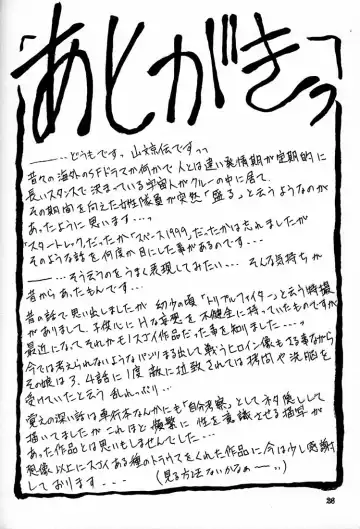 あとがきっ
———…どうもです。山文京伝ですっっ
昔々の海外のSFドラマか何かで人とは違い発情期が定期的に
長いスタンスで決まっている宇宙人がクルーの中に居て、
その期間を向えた女性隊員が突然「盛る」と云うようなのが
あったように思います…っ
「スタートレック」だったか「スペース1999」だったかは忘れましたが
そのような話を何度か目にした事があるのです…
———…そう云うのをうまく表現してみたい…そんな気持ちが
昔からあったもんです…
昔の話で思い出しましたが幼少の頃「トリプルファイター」と云う特撮
がありまして、子供心にHな妄想を不健全に持っていたものですが
最近になってそれがも1スゴイ作品だった事を知りました…っ
今では考えられないようなパンツまる出しで戦うヒロイン像もさる事ながら
その娘は3、4話に1度敵に拉致されては拷問や洗脳を
受けていたと云う乱れっぷり…
覚えの深い話は単行本なんかにも「自分考察」としてネタ倒しして
描いてましたがこれほど頻繁に性を意識させる描写が
あった作品とは思いもしませんでした…
想像以上にスゴイある種のトラウマをくれた作品に今は少し感謝
しております…(見る方法ないかなぁー…)
36